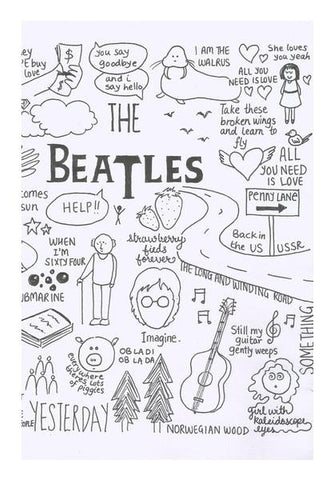 ey
E buy
love
$
you say
goodbye
and i
say hello
I AM THE
WALRUS
She loves
you yeah
ALL YOU
NEED IS LOVE
Take these
broken wings
and learn to
fly
THE
BEATLES
ALL
YOU NEED
IS LOVE
comes
sun
HELP!!
strawberry
fieds
forever
PENNY LANE
Back in
the US
USSR
WHEN
I'M
SIXTY FOUR
THE LONG AND WINDING ROAD
BMARINE
Imagine.
Still my
guitar
gently weeps
SOMETHING
everywhere
theres lots
of piggies
OB LA DI
OB LA DA
girl with
kaleidoscope
eyes
PEOPLE
YESTERDAY
NORWEGIAN WOOD